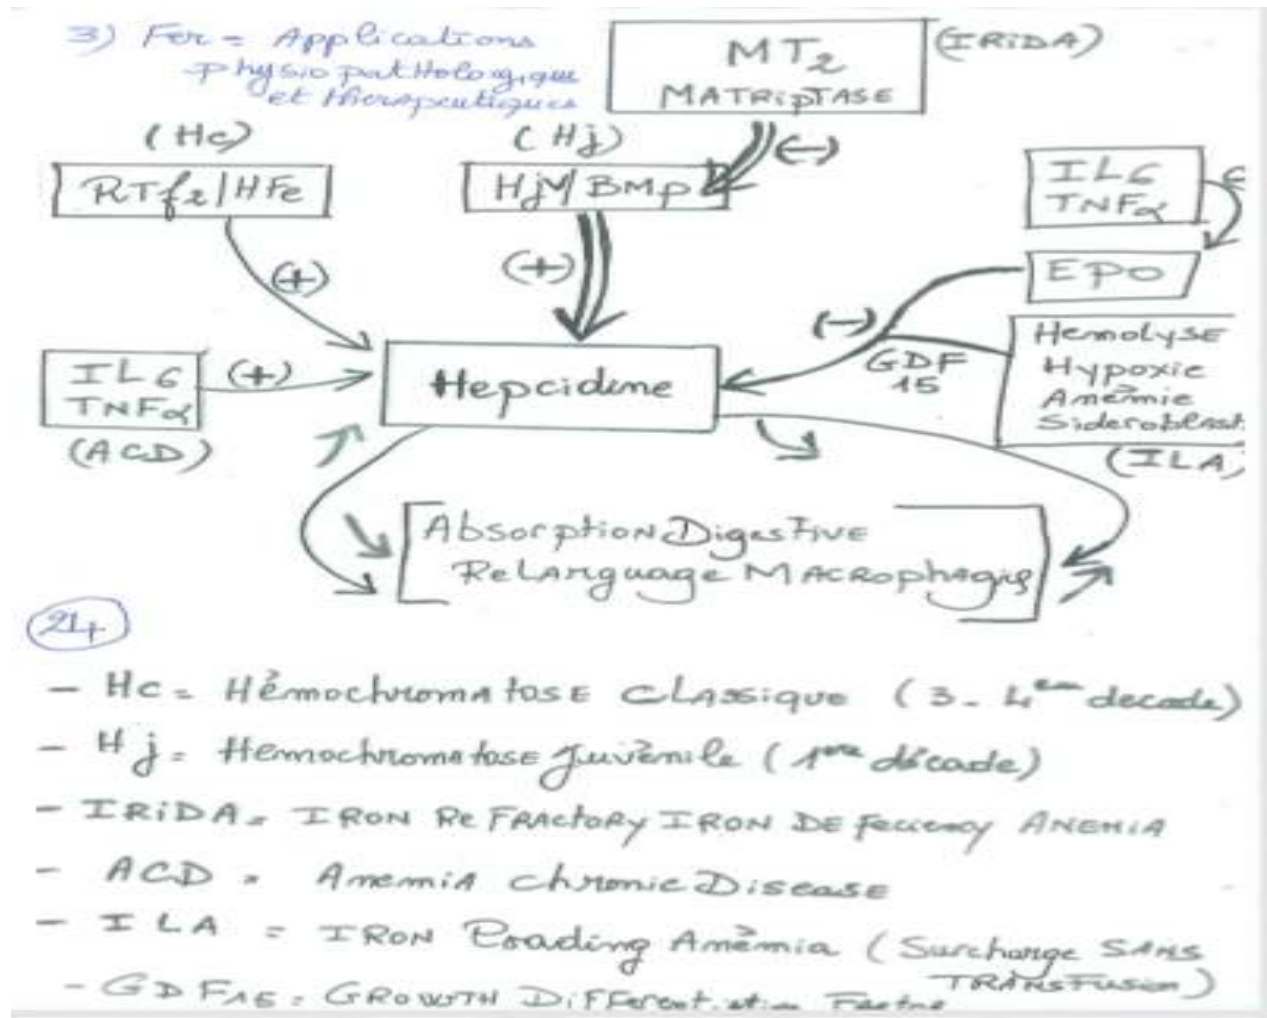 3) Fer = Applications
physiopathologique
et thérapeutiques
MT2
MATRiPTASE
(IRiDA)
(Hc)
RTf2/HFe
(Hj)
HJV/BMP
(-)
IL6
TNFα
EPO
(+)
(+)
(-)
GDF
15
Hemolyse
Hypoxie
Anémie
Sideroblast
(ILA)
IL6
TNFα
(+)
(ACD)
Hepcidine
Absorption Digestive
Relarguage MACROphagiq
24
- Hc = Hémochromatose Classique (3-4em decade)
- Hj = Hemochromatose Juvénile (1ere décade)
- IRiDA = IRON ReFRActoRy IRON DEFeciency ANEMIA
- ACD = Anemia chronic Disease
- ILA = IRON Loading Anémia (Surcharge SANS
TRANSFusion)
- GDF15 = GROWTH DiFFerentiation Factor